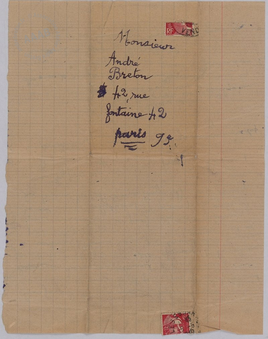 Monsieur
André
Breton
42, rue
fontaine 42
paris 9e